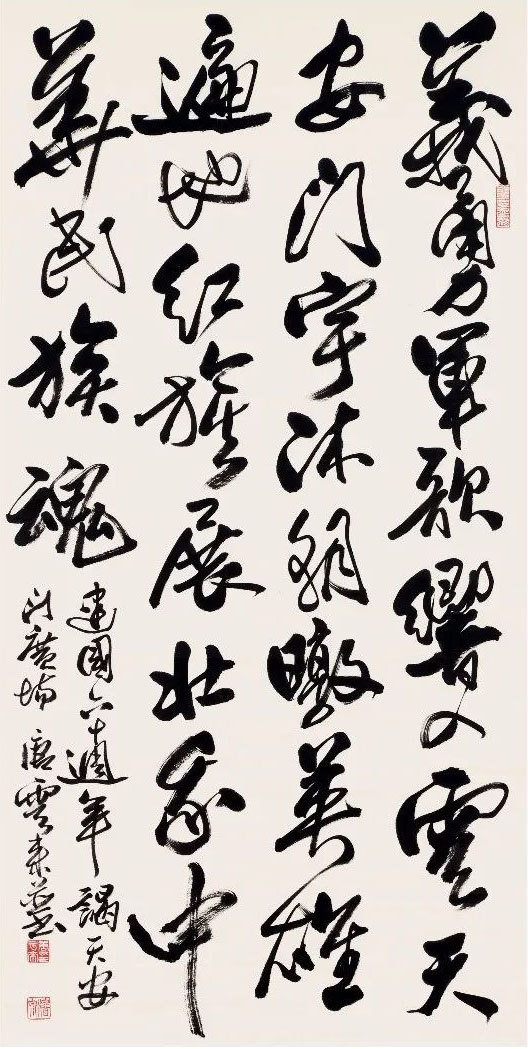 義勇軍歌響入雲天
安門宇沐朝暾英雄
遍地紅旗展壯我中
華民族魂
建國六十週年謁天安
門廣場 唐雲來並書